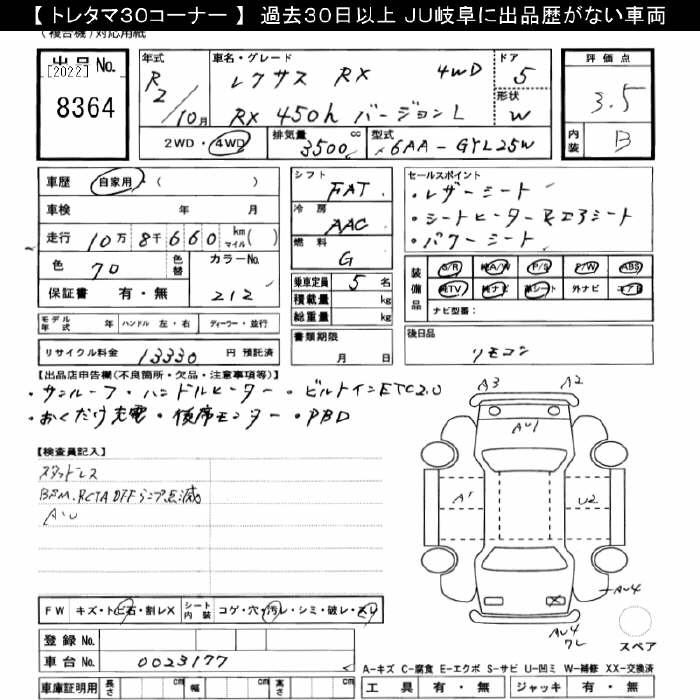 【 トレタマ30コーナー 】 過去30日以上 JU岐阜に出品歴がない車両
(複合機)対応用紙
出品No.
[2022]
8364
年式
R2/10月
車名・グレード
レクサス RX 4WD
RX 450h バージョンL
ドア
5
形状
W
2WD・4WD
排気量
3500 cc
型式
6AA-GYL25W
評価点
3.5
内装
B
車歴 自家用・( )
車検 年 月
走行 10万 8千 660 km マイル( )
色 70 色替
カラーNo.
212
保証書 有・無
シフト
FAT
冷房
AAC
燃料
G
乗車定員 5 名
積載量 kg
総重量 kg
セールスポイント
・レザーシート
・シートヒーター&エアシート
・パワーシート
装備品
S/R 純A/W P/S P/W ABS
純TV 純ナビ 革シート 外ナビ エアB
ナビ型番:
モデル年式 年 ハンドル 左・右 ディーラー・並行
書類期限
月 日
後日品
リモコン
リサイクル料金 13330 円 預託済
【出品店申告欄(不良箇所・欠品・注意事項等)】
・サンルーフ・ハンドルヒーター・ビルトインETC2.0
・おくだけ充電・後席モニター・PBD
【検査員記入】
スタッドレス
BSM.RCTA OFFランプ点滅
AU
A3 A2
AU1
A1 U2
AU4
AU4
スペア
FW キズ・トビ石・割レX
シート内装 コゲ・穴・汚レ・シミ・破レ・スレ
登録No.
車台No. 0023177
車庫証明用 長さ cm 幅 cm 高さ cm
A-キズ C-腐食 E-エクボ S-サビ U-凹ミ W-補修 XX-交換済
工具 有・無 ジャッキ 有・無